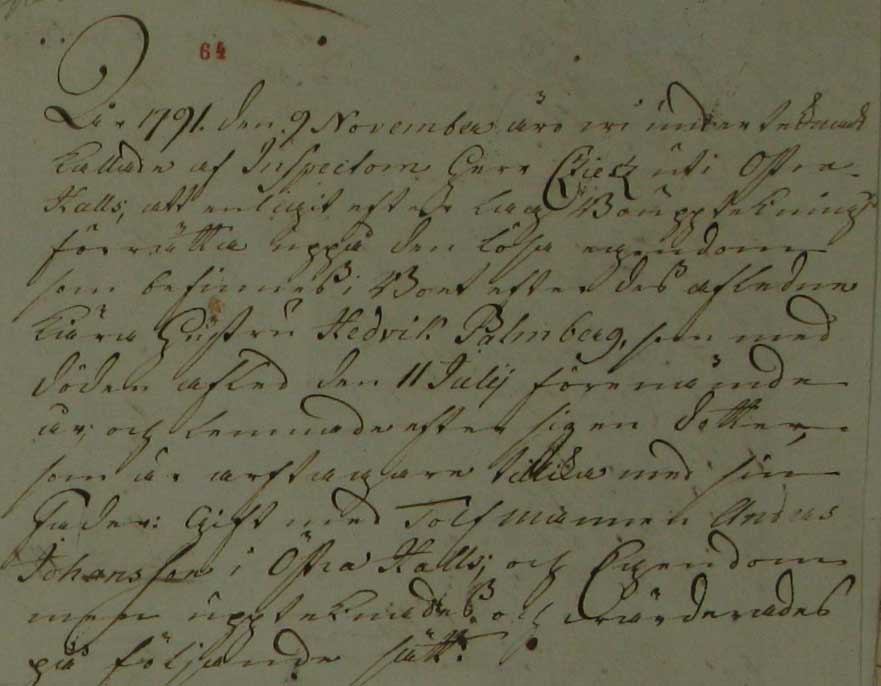 64
År 1791. den 9 November äro vi undertecknade
kallade af Inspectorn Herr uti Östra
Kalls, att enligit efter Lag Bouppteknings
förrätta uppå den lösa egendom
som befinnes i Boet efter des afledne
kiära Hustru Hedvik Palmberg, som med
döden afled den 11 Julij förenämde
år, och lemnade efter sig en dotter,
som är arftagare tillika med sin
Fader: Gift med Tolfmannen Anders
Johansson i Östra Kalls; och Egendom
men upptecknades och värderades
på följande sätt: